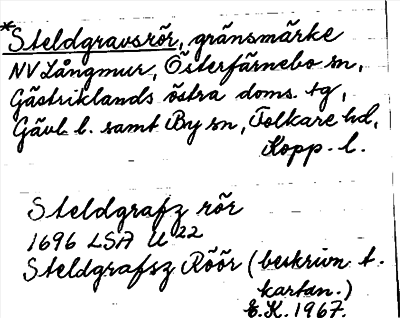 *Steldgravsrör, gränsmärke
NV Långmur, Österfärnebo sn,
Gästriklands östra doms. tg,
Gävl. l. samt By sn, Folkare hd,
Kopp. l.
Steldgrafz rör
1696 LSA U 22
Steldgrafsz Röör (beskrivn t.
kartan.)
E.K. 1967.